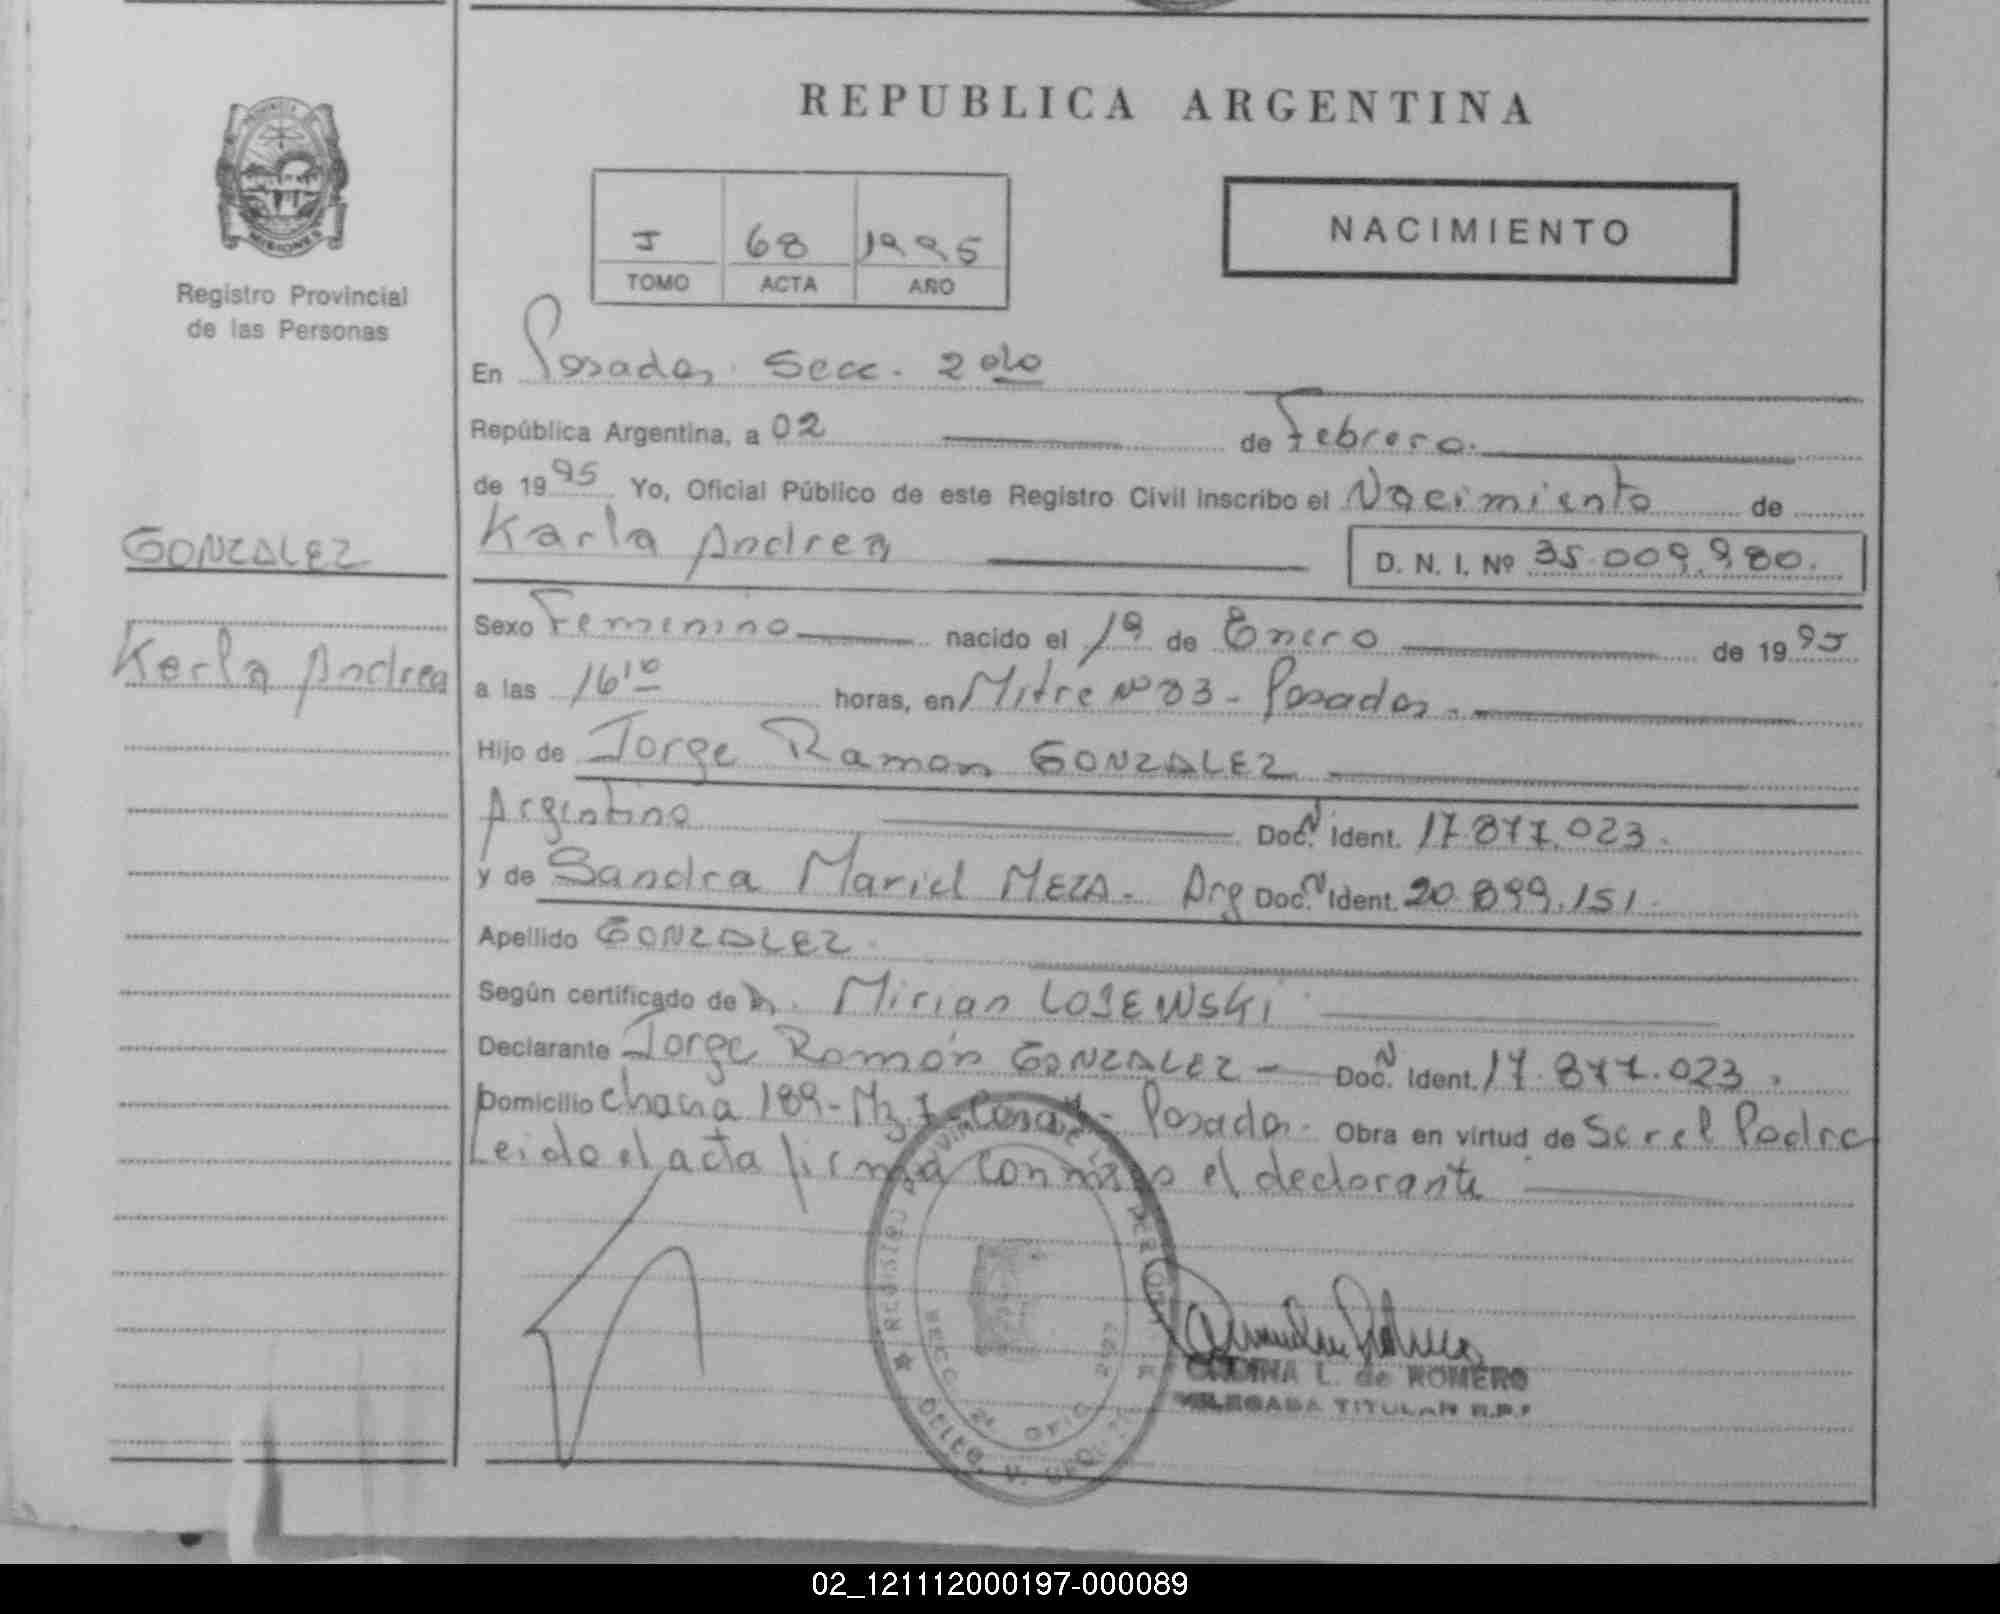 REPUBLICA ARGENTINA
NACIMIENTO
I 68 1995
TOMO ACTA AÑO
MISIONES
Registro Provincial
de las Personas
En Posadas Secc. 2
República Argentina, a 02 de Febrero.
de 1995 Yo, Oficial Público de este Registro Civil inscribo el Nacimiento de
GONZALEZ
Karla Andrea
Karla Andrea D. N. I. Nº 35.009.980.
Sexo Femenino nacido el 19 de Enero de 1995
a las 16 10 horas, en Mitre Nº 03 - Posadas.
Hijo de Jorge Ramon GONZALEZ
Argentino Doc. N Ident. 17.877.023.
y de Sandra Mariel MEZA. Arg Doc. N Ident. 20.899.151.
Apellido GONZALEZ.
Según certificado de Mirian LOSEWSKI
Declarante Jorge Ramón GONZALEZ - Doc. N Ident. 17.877.023.
Domicilio Chacra 189- Mz. Casa - Posadas. Obra en virtud de Ser el Padre
Leido el acta firma conmigo el declarante
REGISTRO PROVINCIAL DE LAS PERSONAS
SECC. 2ª OFIC.
L. de ROMERO
DELEGADA TITULAR R.P.P
02_121112000197-000089